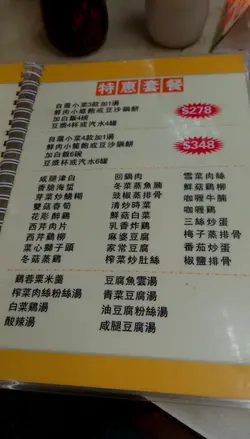 特惠套餐
自選小菜3款加1湯
鮮肉小籠飽或豆沙鍋餅
加白飯4碗
豆漿4杯或汽水4罐
$278
自選小菜4款加1湯
鮮肉小籠飽或豆沙鍋餅
加白飯6碗
豆漿6杯或汽水6罐
$348
咸腿津白 回鍋肉 雪菜肉絲
香脆海蜇 冬菜蒸魚腩 鮮菇鷄柳
芽菜炒鱔糊 豉椒蒸排骨 咖喱牛腩
雙菇春筍 清炒時菜 咖喱鷄
花彫醉鷄 鮮菇白菜 三絲炒蛋
西芹肉片 乳香炸鷄 梅子蒸排骨
西芹鷄柳 麻婆豆腐 番茄炒蛋
菜心獅子頭 家常豆腐 椒鹽排骨
冬菇蒸鷄 榨菜炒肚絲
鷄蓉粟米羹 豆腐魚雲湯
榨菜肉絲粉絲湯 青菜豆腐湯
白菜鷄湯 油豆腐粉絲湯
酸辣湯 咸腿豆腐湯